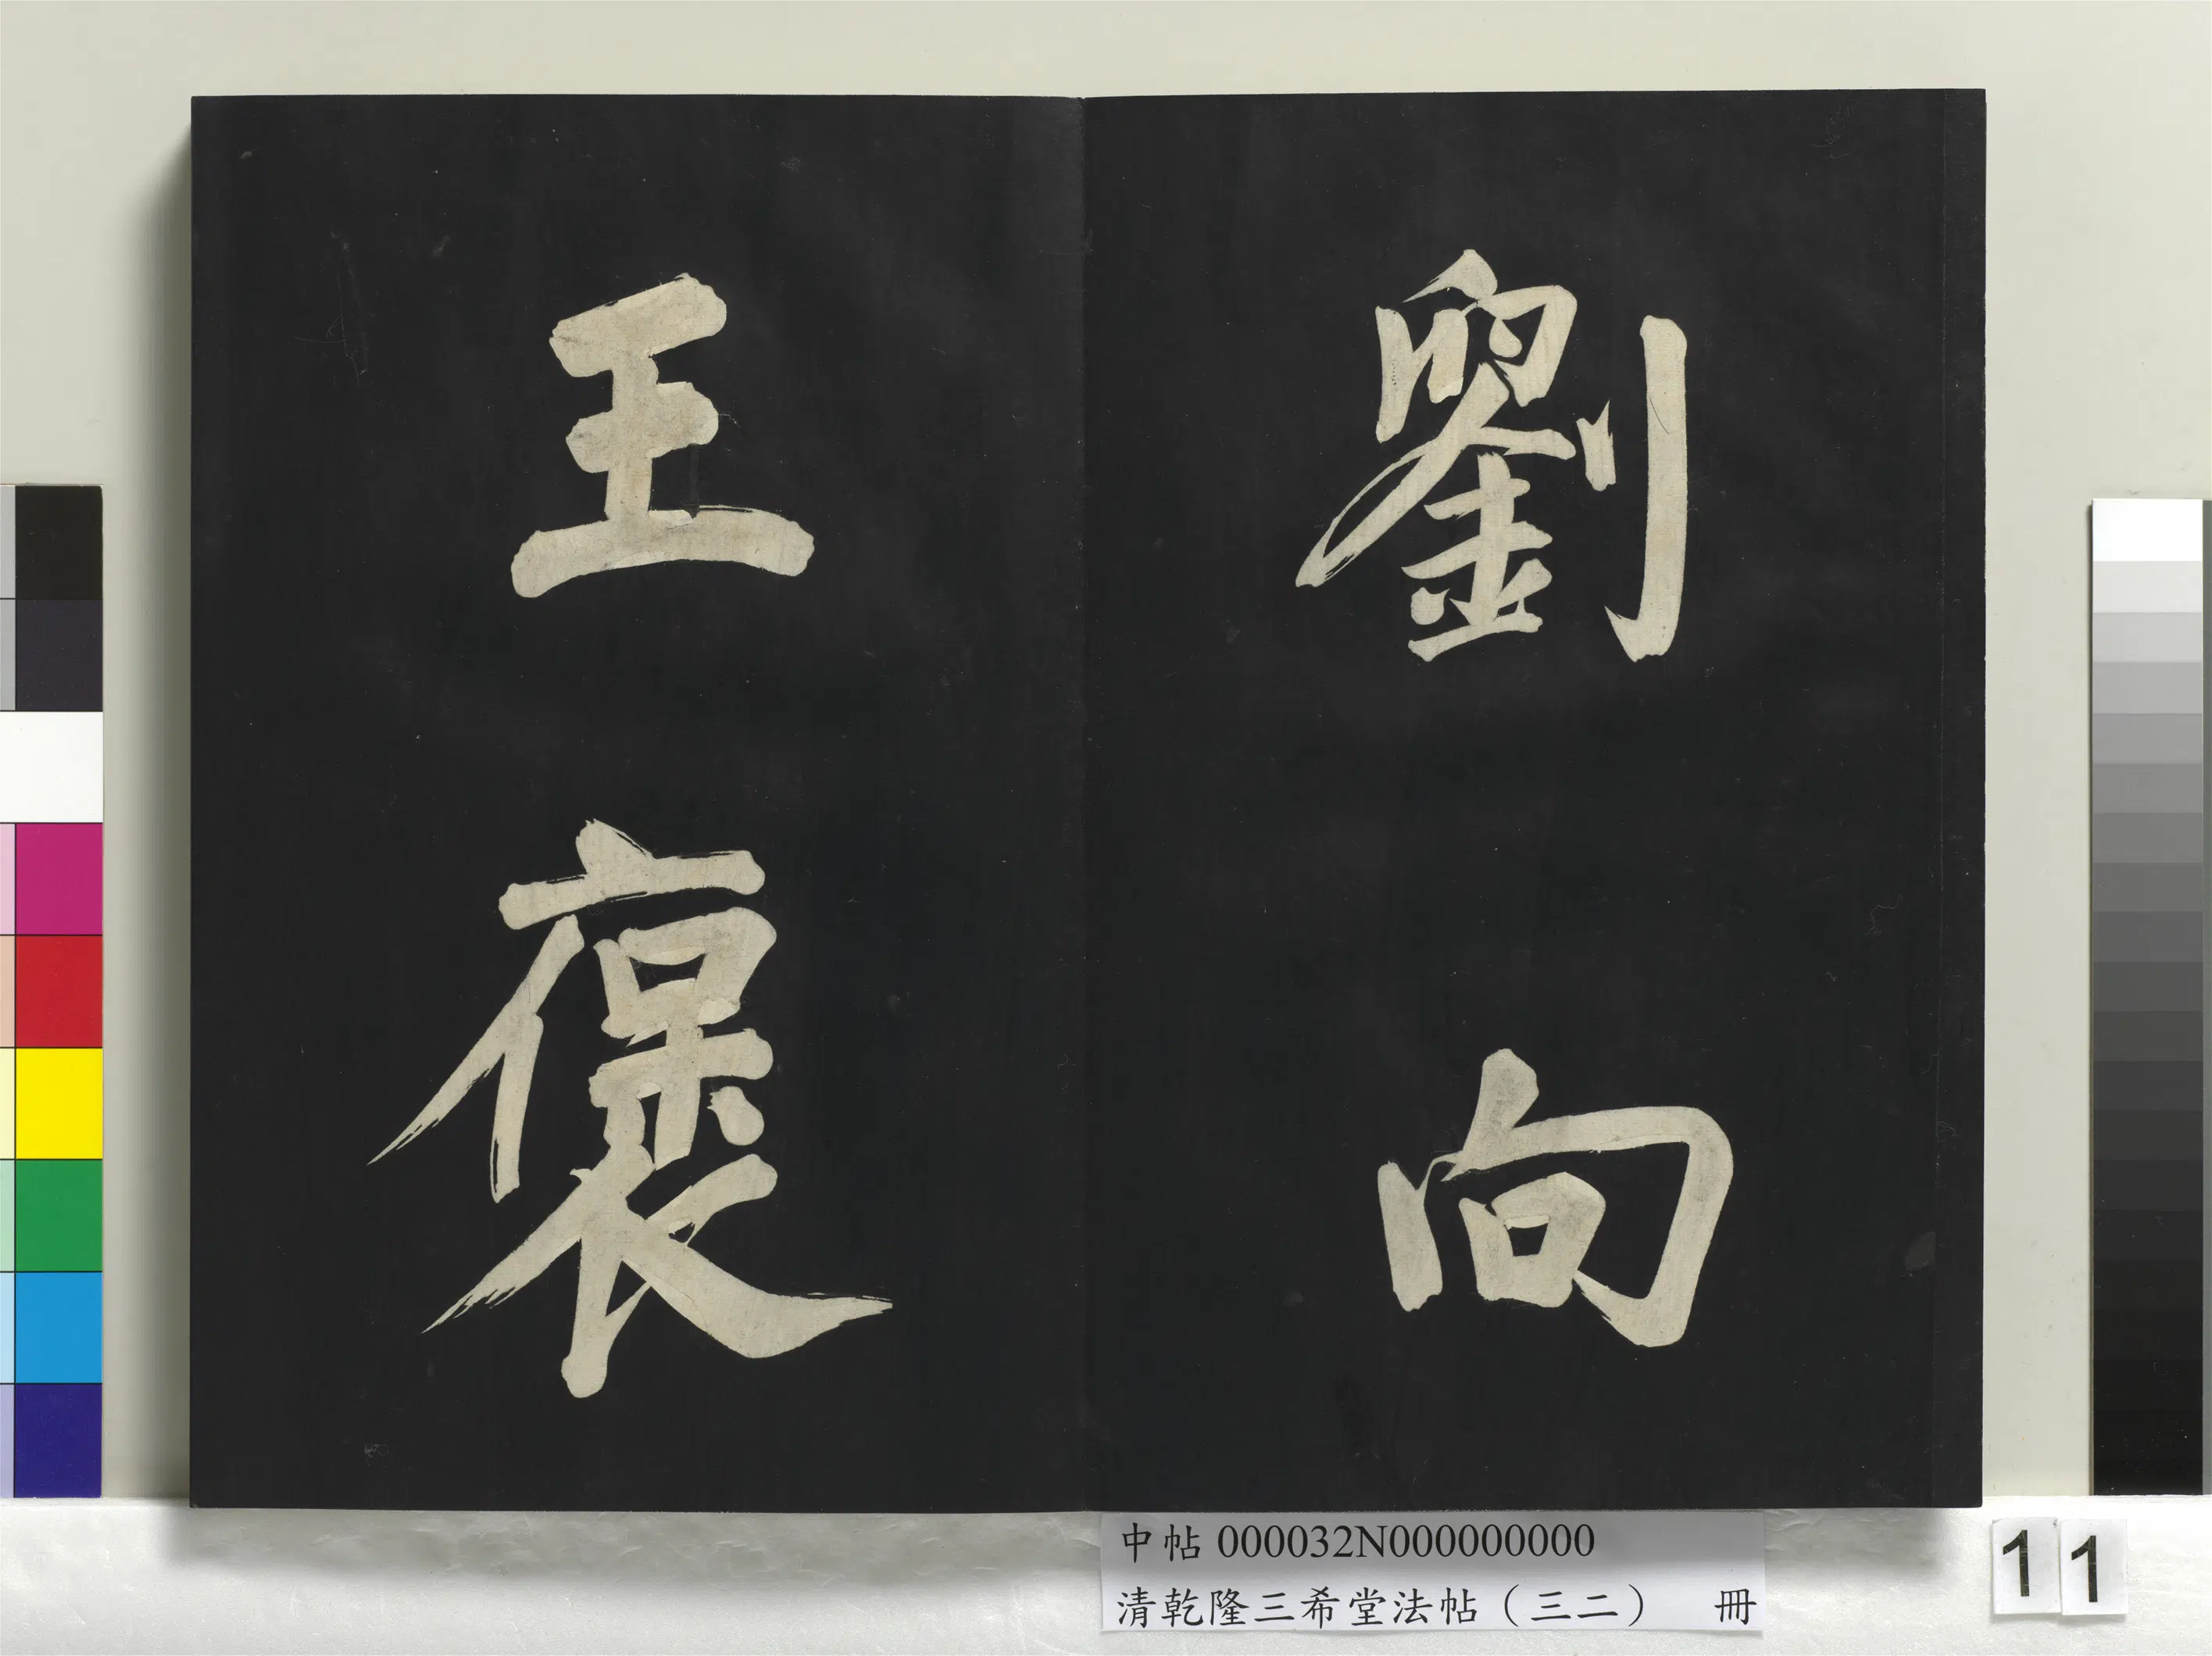 劉向
王褒
中帖 000032N000000000
清乾隆三希堂法帖（三二） 冊
11